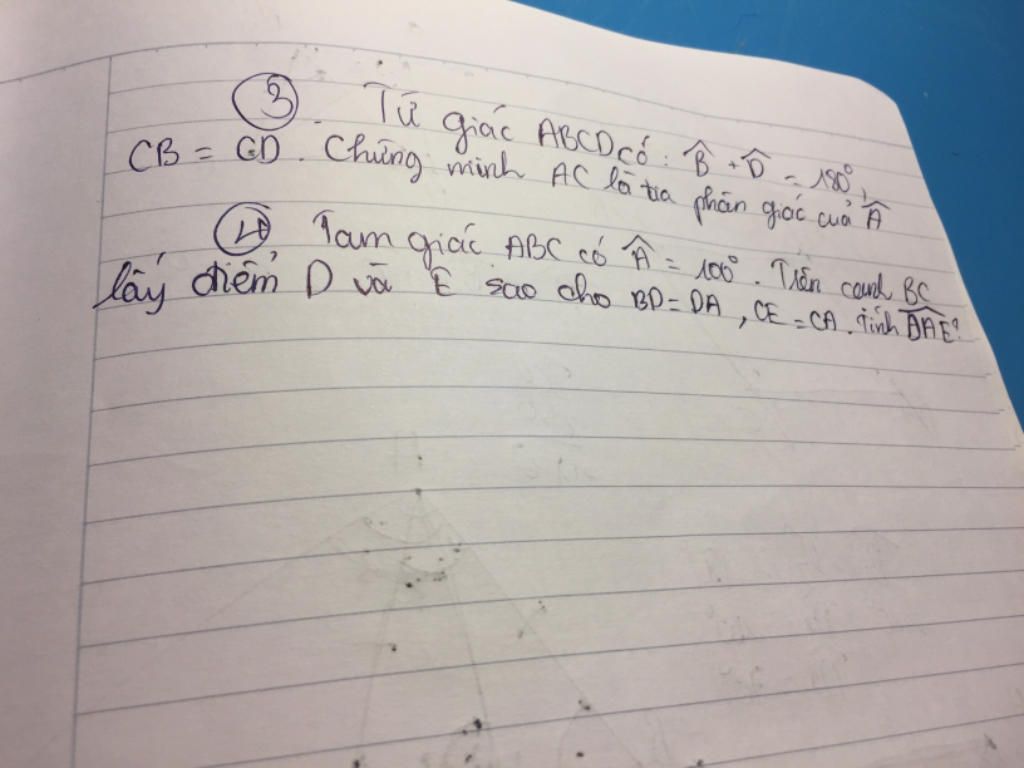 ③. Tứ giác ABCD có: B̂ + D̂ = 180°,
CB = CD. Chứng minh AC là tia phân giác của Â
④ Tam giác ABC có Â = 100°. Trên cạnh BC
lấy điểm D và E sao cho BD = DA, CE = CA. Tính D̂AE?